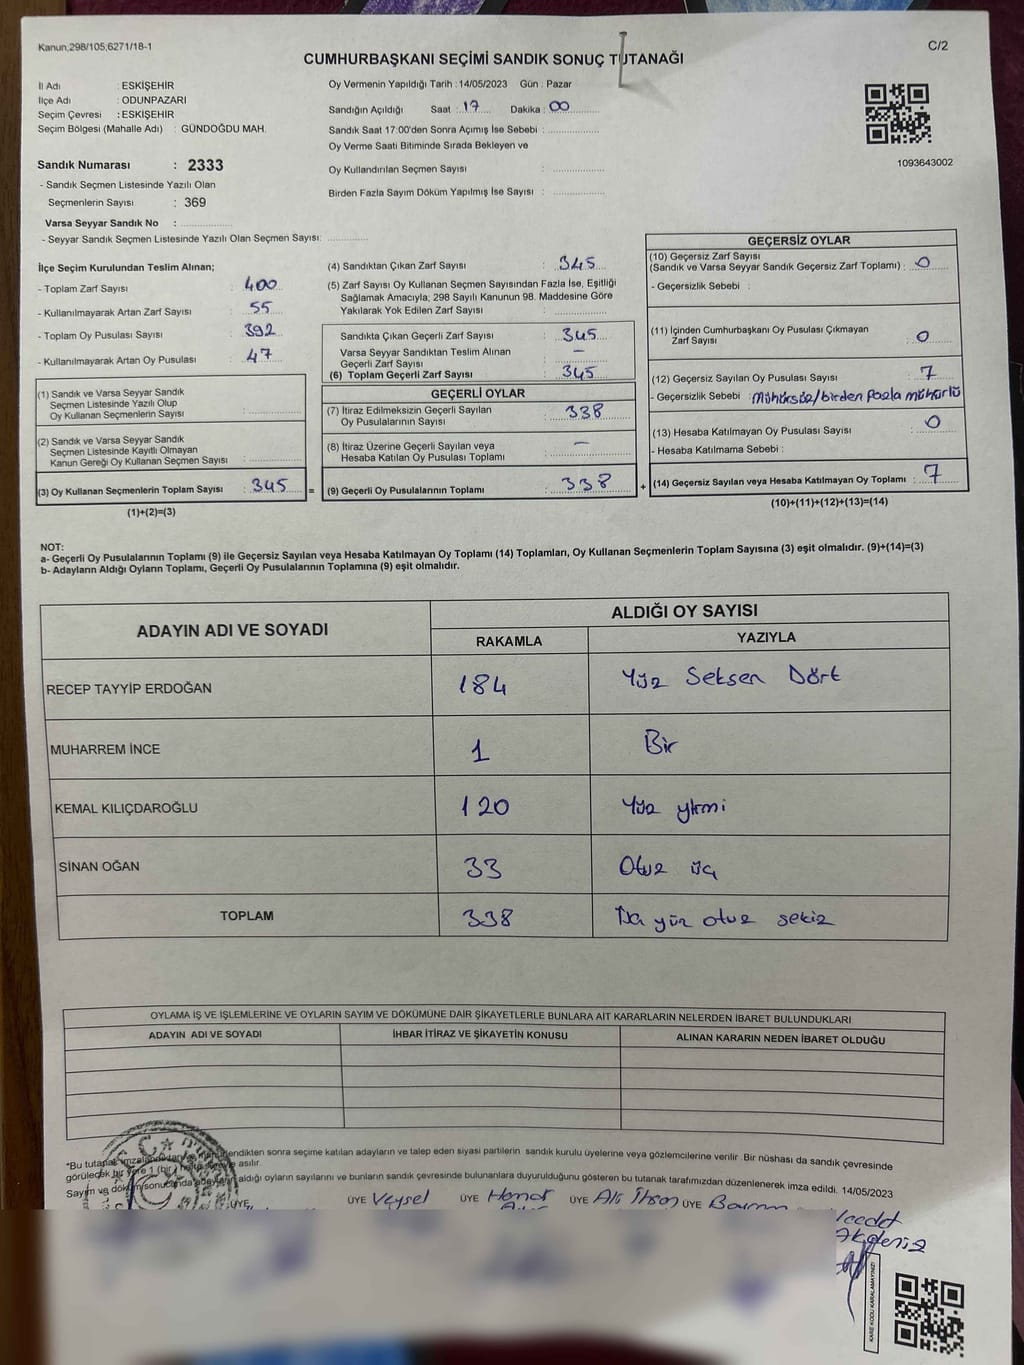 Kanun,298/105,6271/18-1
C/2
CUMHURBAŞKANI SEÇİMİ SANDIK SONUÇ TUTANAĞI
İl Adı : ESKİŞEHİR
İlçe Adı : ODUNPAZARI
Seçim Çevresi : ESKİŞEHİR
Seçim Bölgesi (Mahalle Adı) : GÜNDOĞDU MAH.
Oy Vermenin Yapıldığı Tarih : 14/05/2023 Gün : Pazar
Sandığın Açıldığı Saat : 17 Dakika : 00
Sandık Saat 17:00'den Sonra Açımış İse Sebebi :
Oy Verme Saati Bitiminde Sırada Bekleyen ve
Oy Kullandırılan Seçmen Sayısı :
Birden Fazla Sayım Döküm Yapılmış İse Sayısı :
1093643002
Sandık Numarası : 2333
- Sandık Seçmen Listesinde Yazılı Olan
Seçmenlerin Sayısı : 369
Varsa Seyyar Sandık No :
- Seyyar Sandık Seçmen Listesinde Yazılı Olan Seçmen Sayısı:
İlçe Seçim Kurulundan Teslim Alınan;
- Toplam Zarf Sayısı : 400
- Kullanılmayarak Artan Zarf Sayısı : 55
- Toplam Oy Pusulası Sayısı : 392
- Kullanılmayarak Artan Oy Pusulası : 47
(1) Sandık ve Varsa Seyyar Sandık
Seçmen Listesinde Yazılı Olup
Oy Kullanan Seçmenlerin Sayısı :
(2) Sandık ve Varsa Seyyar Sandık
Seçmen Listesinde Kayıtlı Olmayan
Kanun Gereği Oy Kullanan Seçmen Sayısı :
(3) Oy Kullanan Seçmenlerin Toplam Sayısı : 345
(1)+(2)=(3)
(4) Sandıktan Çıkan Zarf Sayısı : 345
(5) Zarf Sayısı Oy Kullanan Seçmen Sayısından Fazla İse, Eşitliği
Sağlamak Amacıyla; 298 Sayılı Kanunun 98. Maddesine Göre
Yakılarak Yok Edilen Zarf Sayısı :
Sandıkta Çıkan Geçerli Zarf Sayısı : 345
Varsa Seyyar Sandıktan Teslim Alınan
Geçerli Zarf Sayısı : —
(6) Toplam Geçerli Zarf Sayısı : 345
GEÇERLİ OYLAR
(7) İtiraz Edilmeksizin Geçerli Sayılan
Oy Pusulalarının Sayısı : 338
(8) İtiraz Üzerine Geçerli Sayılan veya
Hesaba Katılan Oy Pusulası Toplamı : —
= (9) Geçerli Oy Pusulalarının Toplamı : 338
GEÇERSİZ OYLAR
(10) Geçersiz Zarf Sayısı
(Sandık ve Varsa Seyyar Sandık Geçersiz Zarf Toplamı) : 0
- Geçersizlik Sebebi :
(11) İçinden Cumhurbaşkanı Oy Pusulası Çıkmayan
Zarf Sayısı : 0
(12) Geçersiz Sayılan Oy Pusulası Sayısı : 7
- Geçersizlik Sebebi : Mühürsüz/birden fazla mühürlü
(13) Hesaba Katılmayan Oy Pusulası Sayısı : 0
- Hesaba Katılmama Sebebi :
+ (14) Geçersiz Sayılan veya Hesaba Katılmayan Oy Toplamı : 7
(10)+(11)+(12)+(13)=(14)
NOT:
a- Geçerli Oy Pusulalarının Toplamı (9) ile Geçersiz Sayılan veya Hesaba Katılmayan Oy Toplamı (14) Toplamları, Oy Kullanan Seçmenlerin Toplam Sayısına (3) eşit olmalıdır. (9)+(14)=(3)
b- Adayların Aldığı Oyların Toplamı, Geçerli Oy Pusulalarının Toplamına (9) eşit olmalıdır.
ADAYIN ADI VE SOYADI
ALDIĞI OY SAYISI
RAKAMLA YAZIYLA
RECEP TAYYİP ERDOĞAN 184 Yüz Seksen Dört
MUHARREM İNCE 1 Bir
KEMAL KILIÇDAROĞLU 120 Yüz yirmi
SİNAN OĞAN 33 Otuz üç
TOPLAM 338 İki yüz otuz sekiz
OYLAMA İŞ VE İŞLEMLERİNE VE OYLARIN SAYIM VE DÖKÜMÜNE DAİR ŞİKAYETLERLE BUNLARA AİT KARARLARIN NELERDEN İBARET BULUNDUKLARI
ADAYIN ADI VE SOYADI İHBAR İTİRAZ VE ŞİKAYETİN KONUSU ALINAN KARARIN NEDEN İBARET OLDUĞU
*Bu tutanak sonra seçime katılan adayların ve talep eden siyasi partilerin sandık kurulu üyelerine veya gözlemcilerine verilir. Bir nüshası da sandık çevresinde
görülecek bir yere 1 (bir) asılır.
Sayım ve döküm sonucunda aldığı oyların sayılarını ve bunların sandık çevresinde bulunanlara duyurulduğunu gösteren bu tutanak tarafımızdan düzenlenerek imza edildi. 14/05/2023
ÜYE ÜYE Veysel ÜYE ÜYE Ali İhsan ÜYE
Akdeniz
KARE KODU KARALAMAYINIZ!